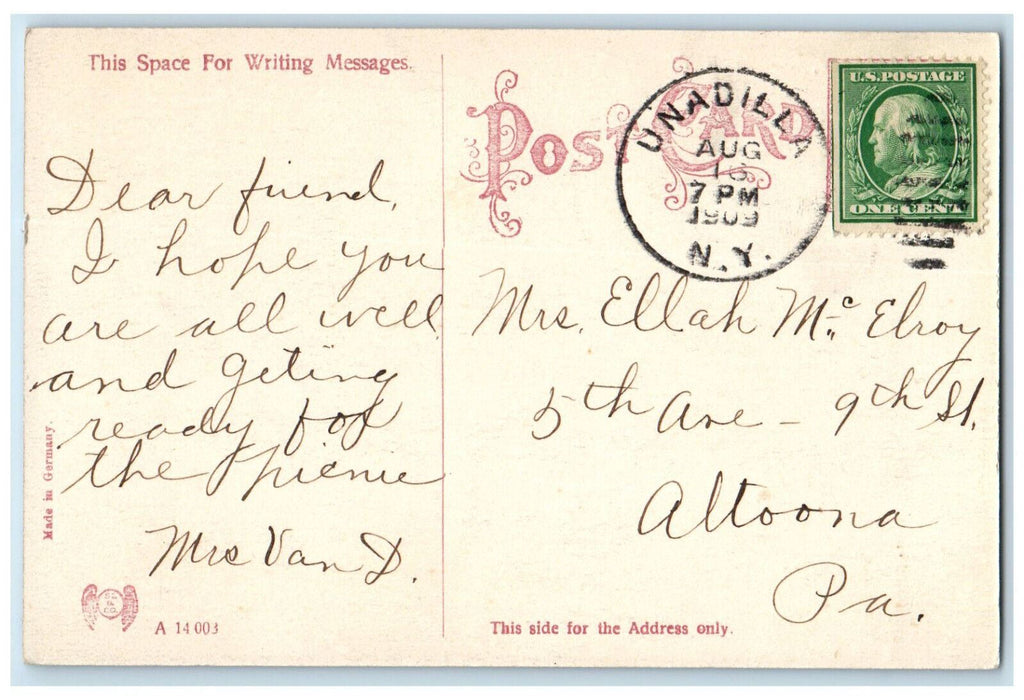 This Space For Writing Messages.
Post Card
UNADILLA
AUG
7 PM
1909
N.Y.
U.S. POSTAGE
ONE CENT
Dear friend,
I hope you
are all well
and geting
ready for
the picnic
Mrs Van D.
Mrs. Ellah Mc Elroy
5th Ave - 9th St.
Altoona
Pa.
Made in Germany.
A 14003
This side for the Address only.